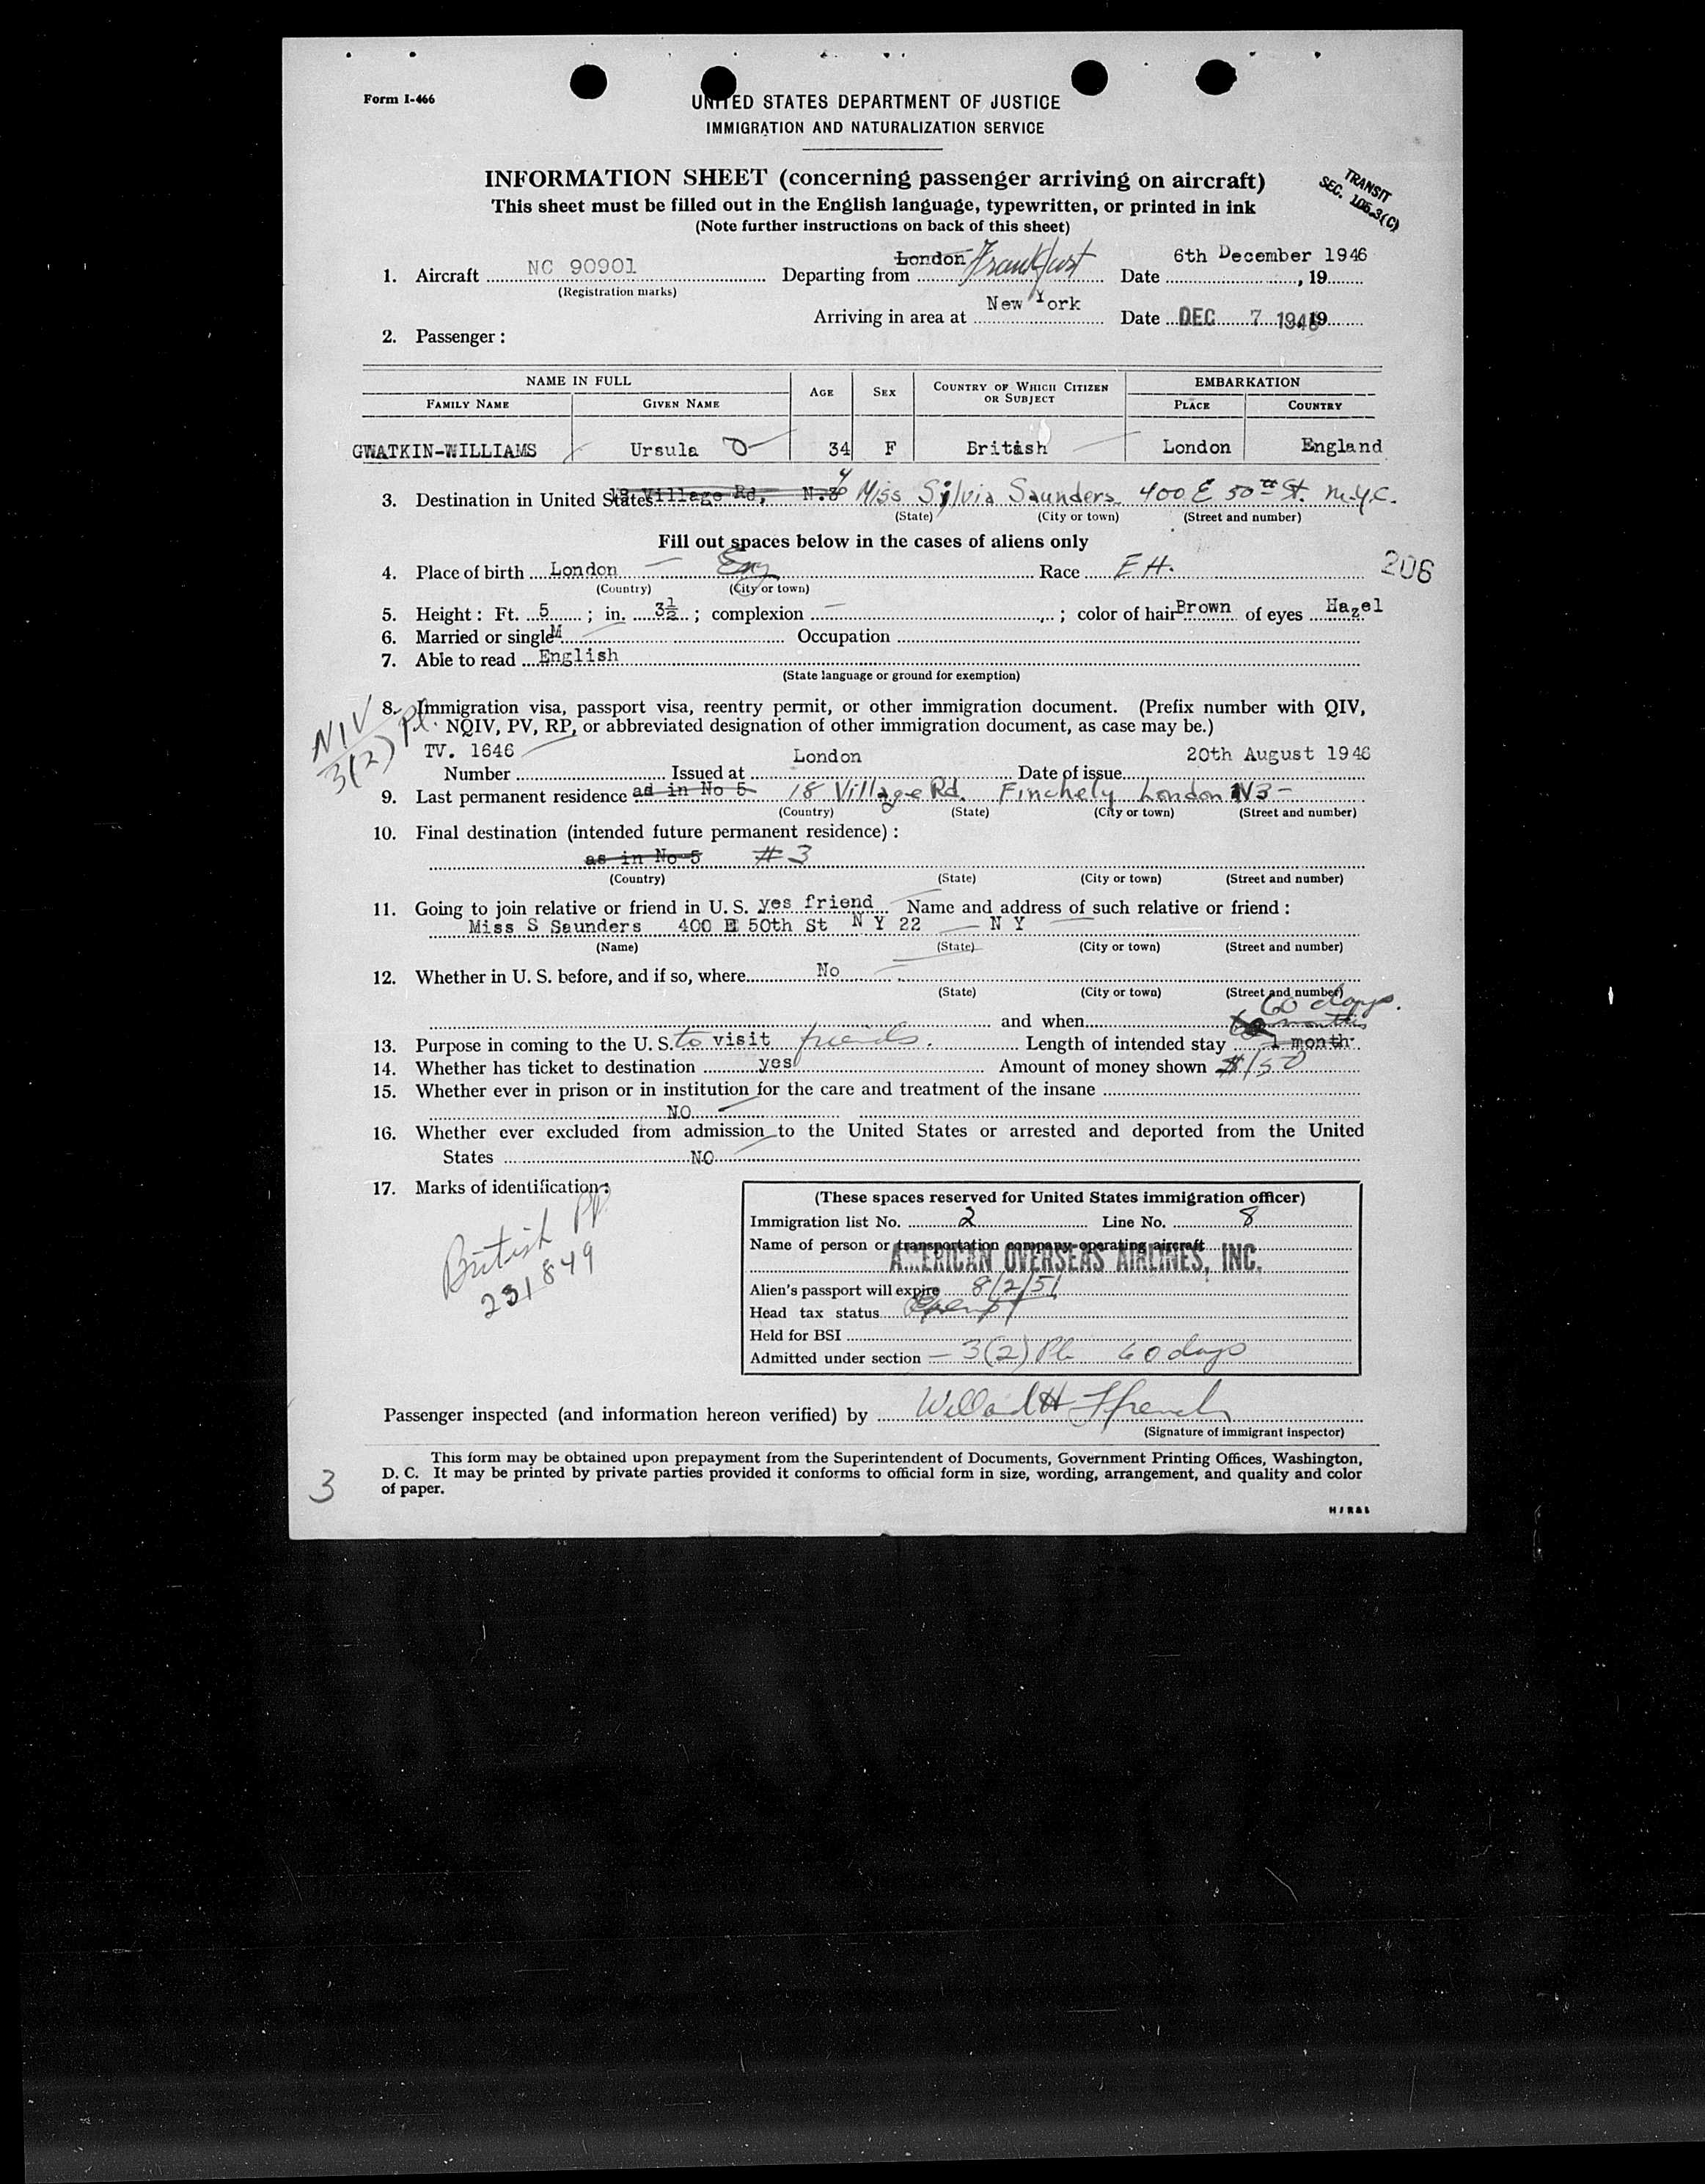 Form I-466
UNITED STATES DEPARTMENT OF JUSTICE
IMMIGRATION AND NATURALIZATION SERVICE
INFORMATION SHEET (concerning passenger arriving on aircraft)
TRANSIT
SEC. 105.3(C)
This sheet must be filled out in the English language, typewritten, or printed in ink
(Note further instructions on back of this sheet)
1. Aircraft NC 90901 Departing from London Frankfurt Date 6th December 1946, 19
(Registration marks)
Arriving in area at New York Date DEC 7 1946 19
2. Passenger:
NAME IN FULL AGE SEX COUNTRY OF WHICH CITIZEN OR SUBJECT EMBARKATION
FAMILY NAME GIVEN NAME PLACE COUNTRY
GWATKIN-WILLIAMS Ursula 34 F British London England
3. Destination in United States 18 Village Rd, N.3 Miss Sylvia Saunders 400 E 50th St. N.Y.C.
(State) (City or town) (Street and number)
Fill out spaces below in the cases of aliens only
4. Place of birth London Eng Race EH. 206
(Country) (City or town)
5. Height: Ft. 5; in. 3½; complexion; color of hair Brown of eyes Hazel
6. Married or single M Occupation
7. Able to read English
(State language or ground for exemption)
NIV
3(2) Pl.
8. Immigration visa, passport visa, reentry permit, or other immigration document. (Prefix number with QIV,
NQIV, PV, RP, or abbreviated designation of other immigration document, as case may be.)
TV. 1646 London 20th August 1946
Number Issued at Date of issue
9. Last permanent residence ad in No 5 18 Village Rd. Finchely London N3-
(Country) (State) (City or town) (Street and number)
10. Final destination (intended future permanent residence):
as in No 5 #3
(Country) (State) (City or town) (Street and number)
11. Going to join relative or friend in U. S. yes friend Name and address of such relative or friend:
Miss S Saunders 400 E 50th St N Y 22 N Y
(Name) (State) (City or town) (Street and number)
12. Whether in U. S. before, and if so, where No
(State) (City or town) (Street and number)
60 days.
and when months
13. Purpose in coming to the U. S. to visit friends. Length of intended stay 1 month
14. Whether has ticket to destination yes Amount of money shown $150
15. Whether ever in prison or in institution for the care and treatment of the insane
NO
16. Whether ever excluded from admission to the United States or arrested and deported from the United
States NO
17. Marks of identification:
British PP
231849
(These spaces reserved for United States immigration officer)
Immigration list No. 2 Line No. 8
Name of person or transportation company operating aircraft
AMERICAN OVERSEAS AIRLINES, INC.
Alien's passport will expire 8/2/51
Head tax status Exempt
Held for BSI
Admitted under section - 3(2) Pl. 60 days
Passenger inspected (and information hereon verified) by Willard H
(Signature of immigrant inspector)
This form may be obtained upon prepayment from the Superintendent of Documents, Government Printing Offices, Washington,
D. C. It may be printed by private parties provided it conforms to official form in size, wording, arrangement, and quality and color
of paper.
3